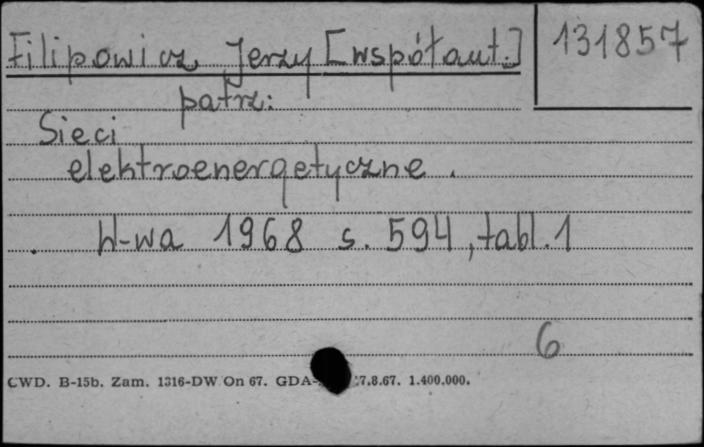 Filipowicz Jerzy [współaut.]
131857
patrz:
Sieci
elektroenergetyczne.
W-wa 1968 s. 594, tabl. 1
6
CWD. B-15b. Zam. 1316-DW On 67. GDA- 7.8.67. 1.400.000.